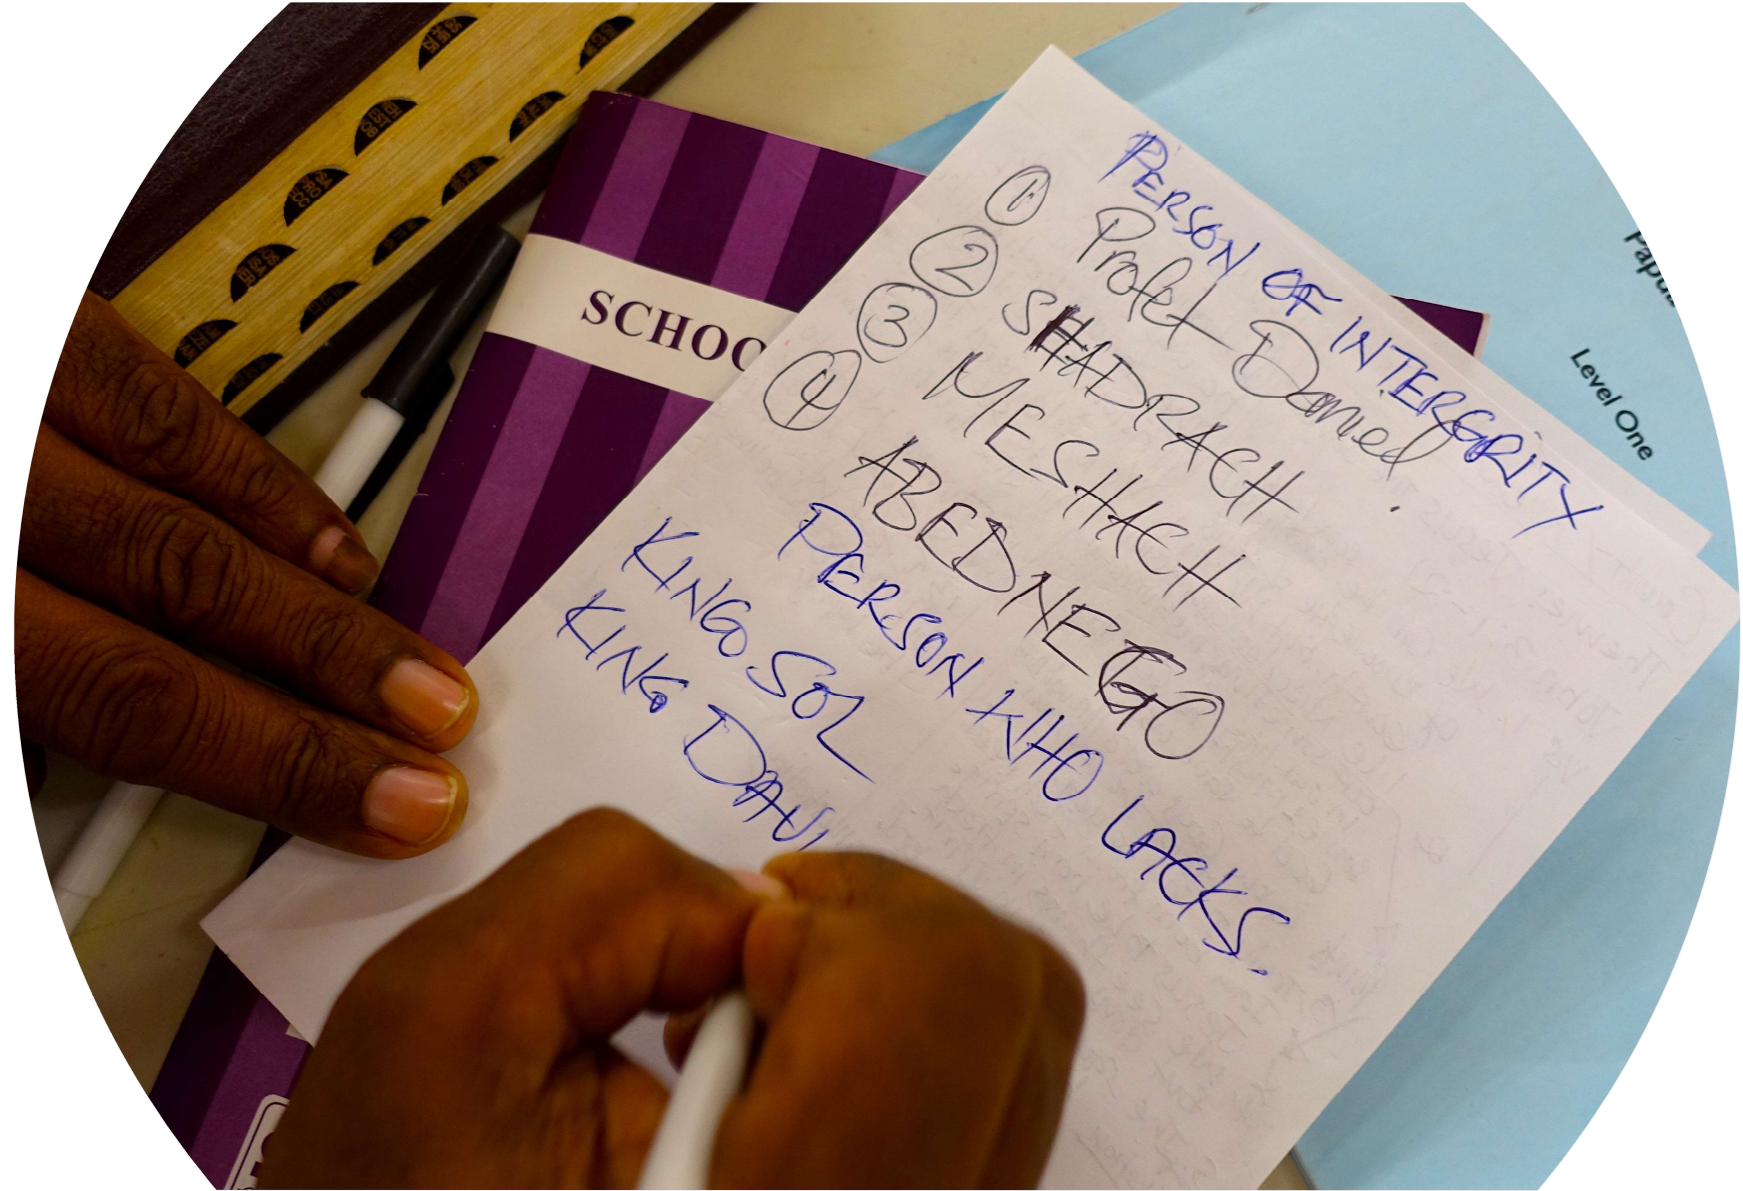 PERSON OF INTERGRITY
1 Profet Daniel.
2 SHADRACH
3 MESHACH
4 ABEDNEGO
PERSON WHO LACKS.
KING SOL
KING DAVI
SCHOO
Level One